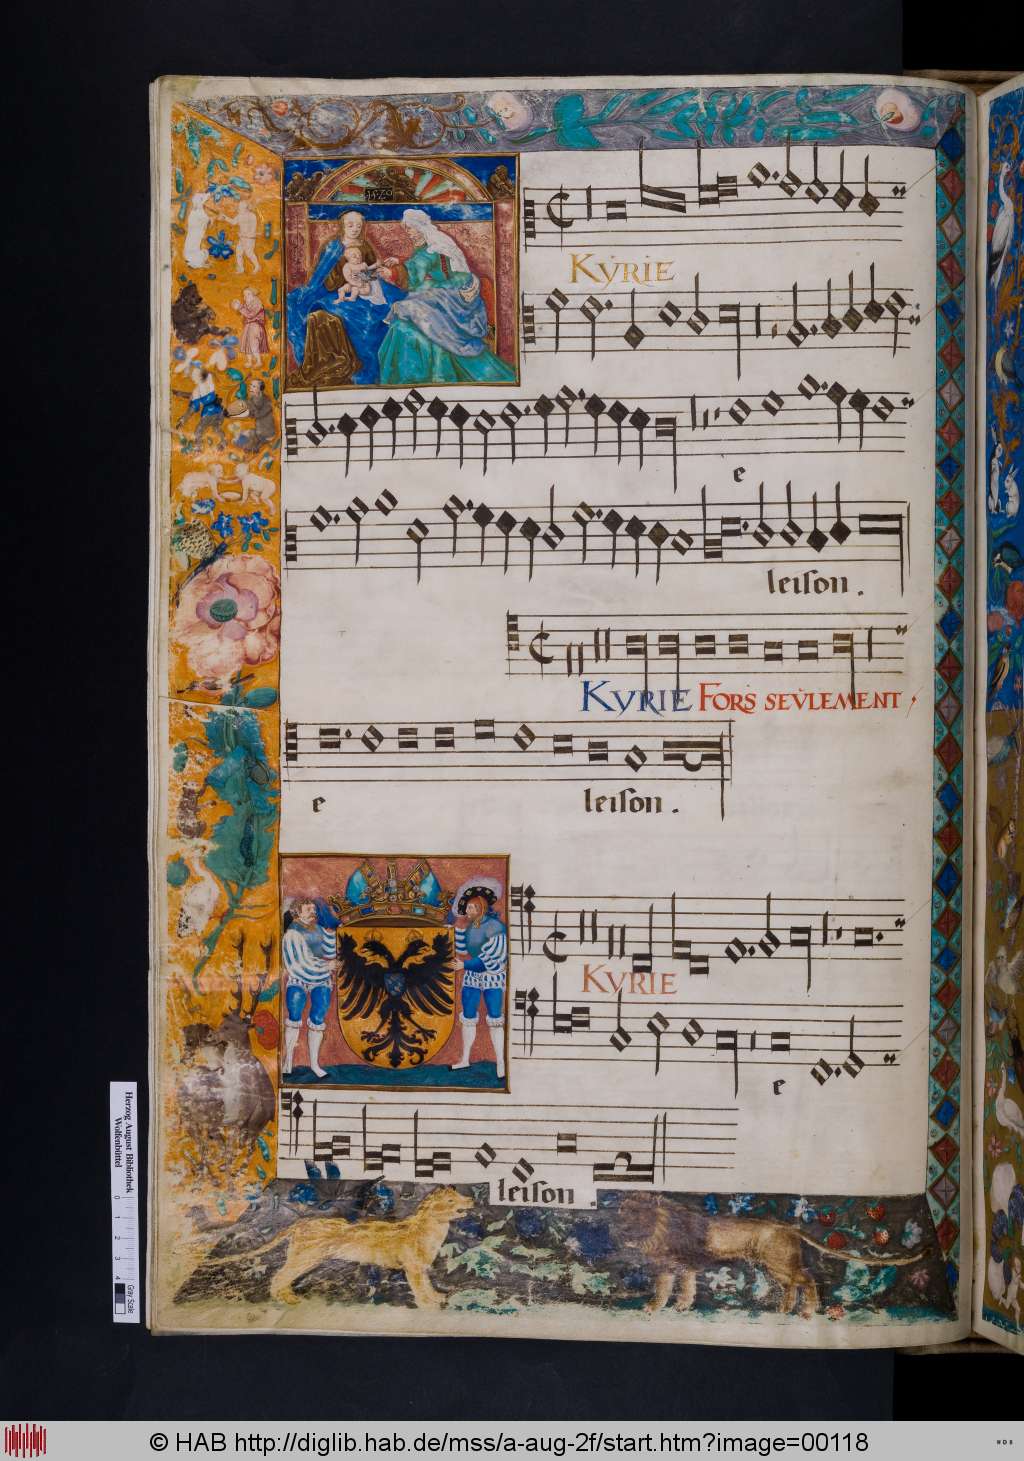 1520
KYRIE
e
leiſon .
KYRIE FORS SEVLEMENT
e
leiſon .
KYRIE
e
leiſon
Herzog August Bibliothek
Wolfenbüttel
0 1 2 3 4
Gray Scale
© HAB http://diglib.hab.de/mss/a-aug-2f/start.htm?image=00118
WDB